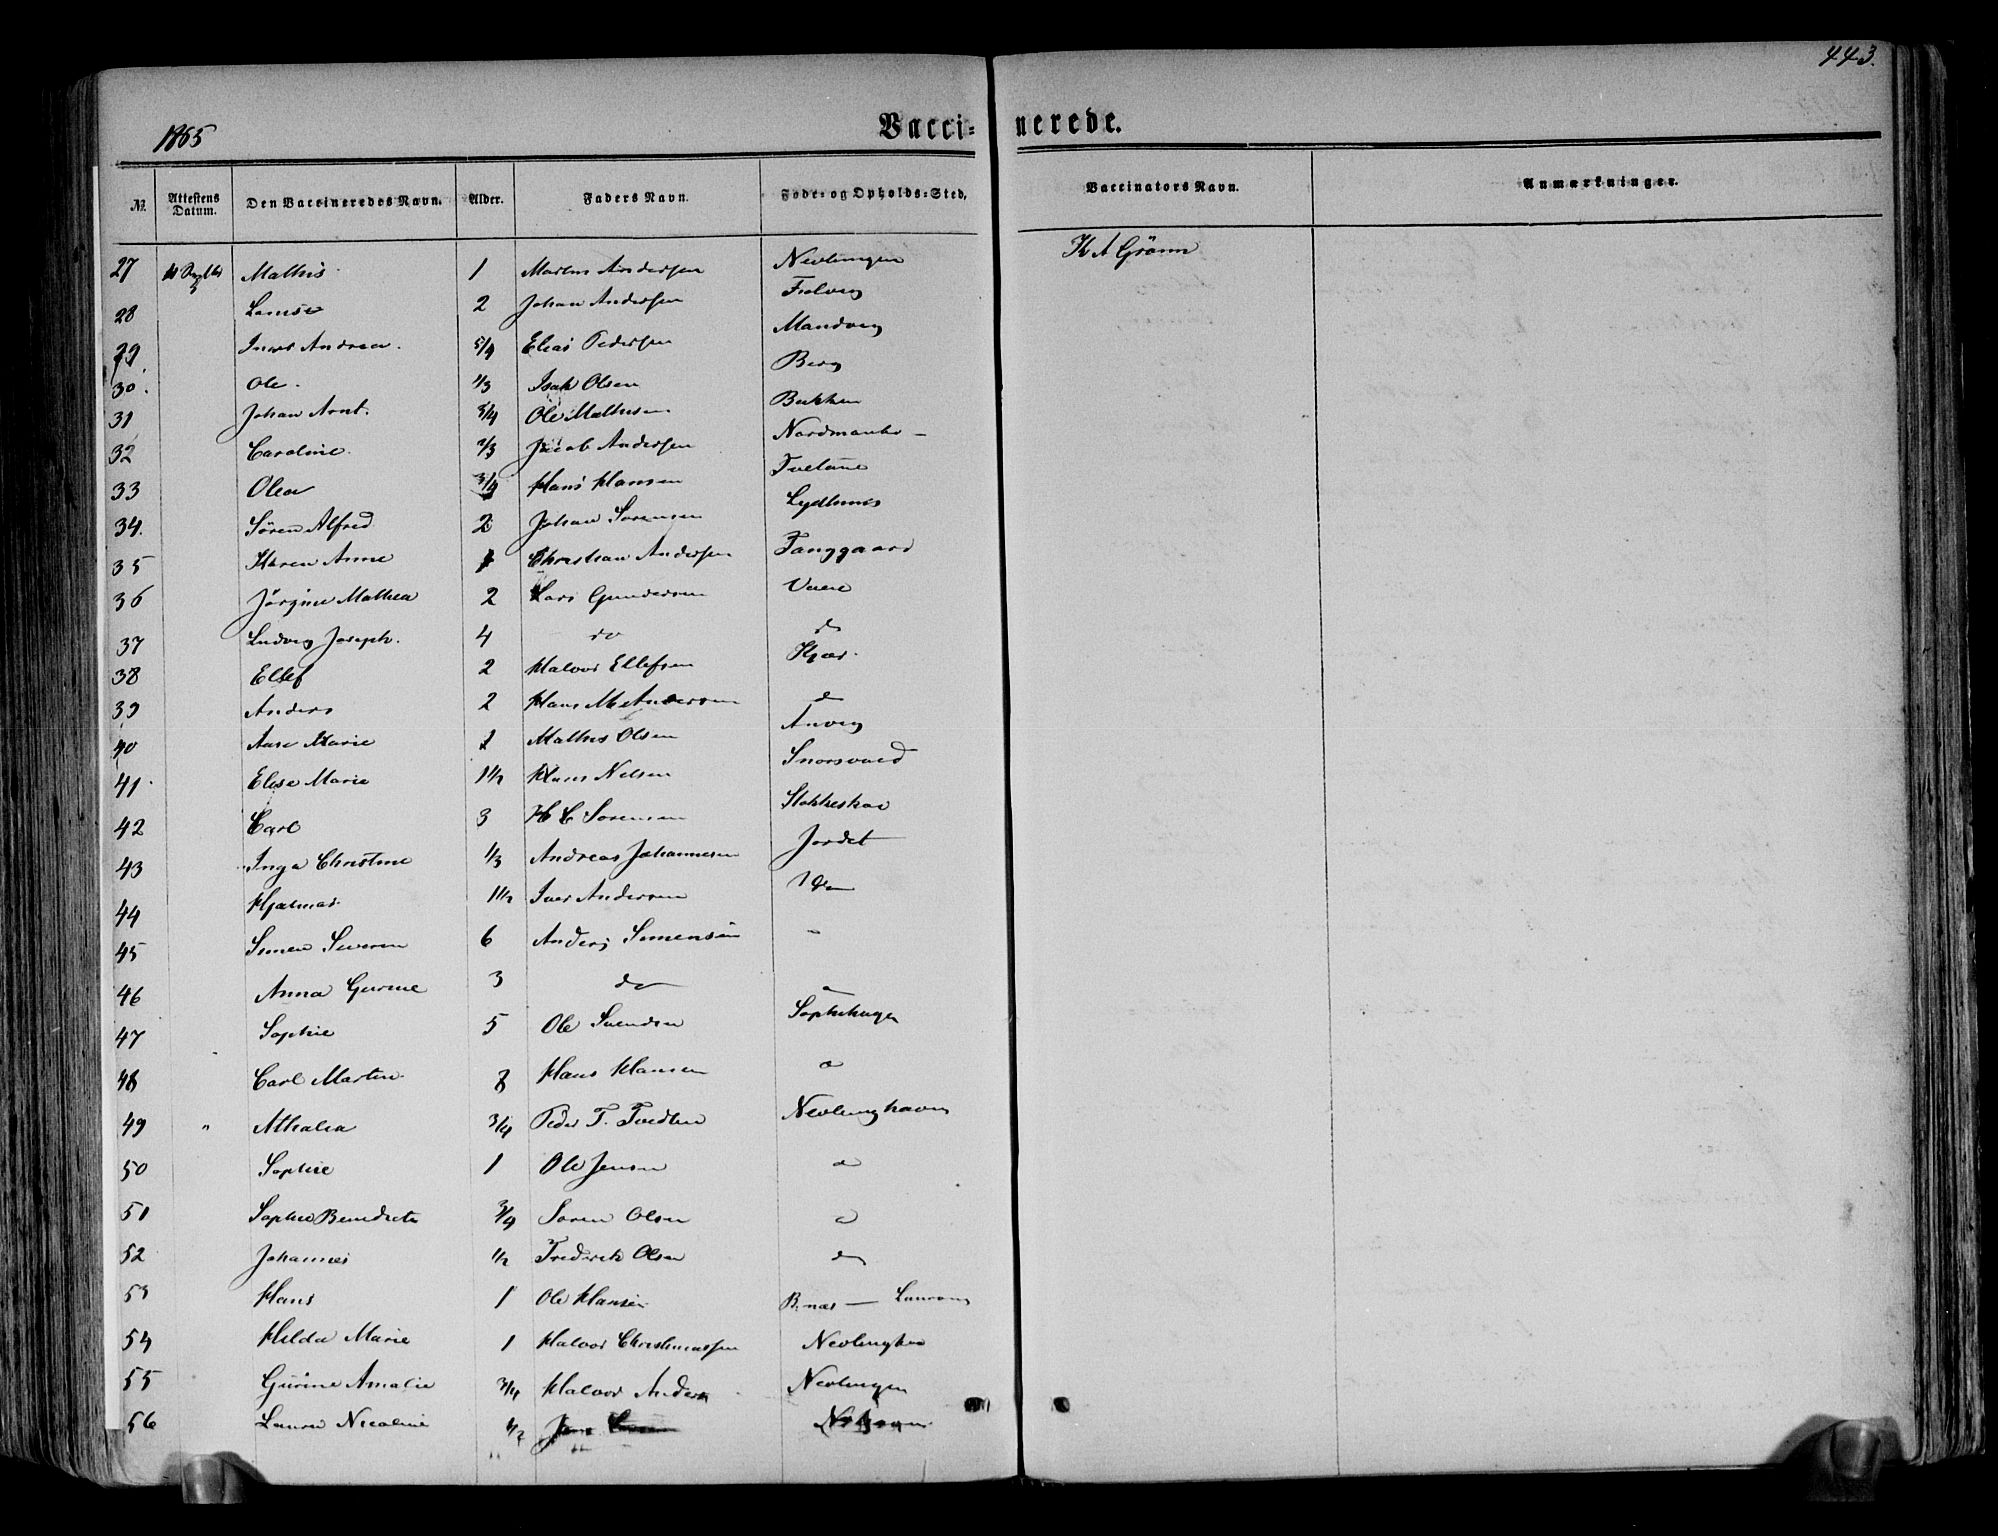 443.
1865
Vaccinerede.
No. Attestens Datum. Den Vaccineredes Navn. Alder. Faders Navn. Føde- og Opholds-Sted. Vaccinators Navn. Anmærkninger.
27 Mathis 1 Andersen Nevlungen K A Grönn
28 2 Johan Andersen Fuglevig
29 Andrea 5/4 Elias Pedersen Mandvig
30. Ole 1/3 Isak Olsen Berg
31 Johan Arnt. 3/4 Ole Mathisen Bakken
32 Caroline 2/3 Jacob Andersen
33 Olea 3/4 Hans Hansen Tvetene
34. Søren Alfred 2 Johan Sorensen
35 Karen Anne 1 Christian Andersen Tanggaard
36 Jörgine Mathea 2 Lars Gundersen
37 Ludvig Joseph. 4 do d
38 Ellef 2 Halvor Ellefsen Kjær
39 Anders 2 Hans M Andersen d
40 Marie 1 Mathis Olsen Anvig
41 Elise Marie 1 1/2 Hans Nilsen
42 Carl 3 H C Sorensen
43 Inga Christine 1/3 Andreas Johannesen Jordet
44 Hjalmar 1 1/2 Iver Andersen
45 Simen Severin 6 Anders Simensen
46 Anna Gurine 3 do
47 Sophie 5 Ole Svendsen
48 Carl Martin 8 Hans Hansen
49 " Athalia 3/4 Peder T. Tvedten Nevlunghavn
50 Sophie 1 Ole Jensen
51 Sophie Benedicte 3/4 Soren Olsen
52 Johannes 1/2 Frederik Olsen do
53 Hans 1 Ole Hansen
54 Hilda Marie 1 Halvor Christiansen
55 Gurine Amalie 3/4 Halvor Nevlungen
56 Laura Nicoline 1/2